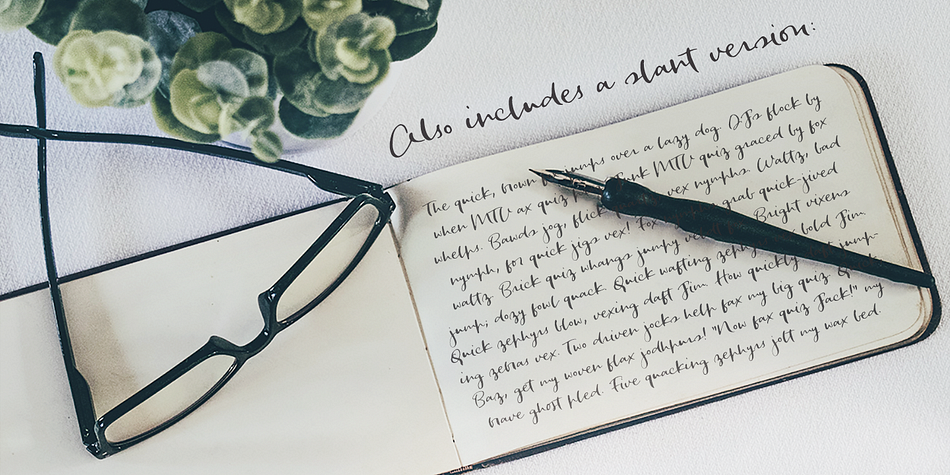 Also includes a slant version:
The quick, brown jumps over a lazy dog. DJs flock by
when MTV ax quiz Junk MTV quiz graced by fox
whelps. Bawds jog, flick vex nymphs. Waltz, bad
nymph, for quick jigs vex! Fox grab quick-jived
waltz. Brick quiz whangs jumpy Bright vixens
jump; dozy fowl quack. Quick wafting zephyrs bold Jim.
Quick zephyrs blow, vexing daft Jim. How quickly jump-
ing zebras vex. Two driven jocks help fax my big quiz. Quick
Baz, get my woven flax jodhpurs! "Now fax quiz Jack!" my
brave ghost pled. Five quacking zephyrs jolt my wax bed.